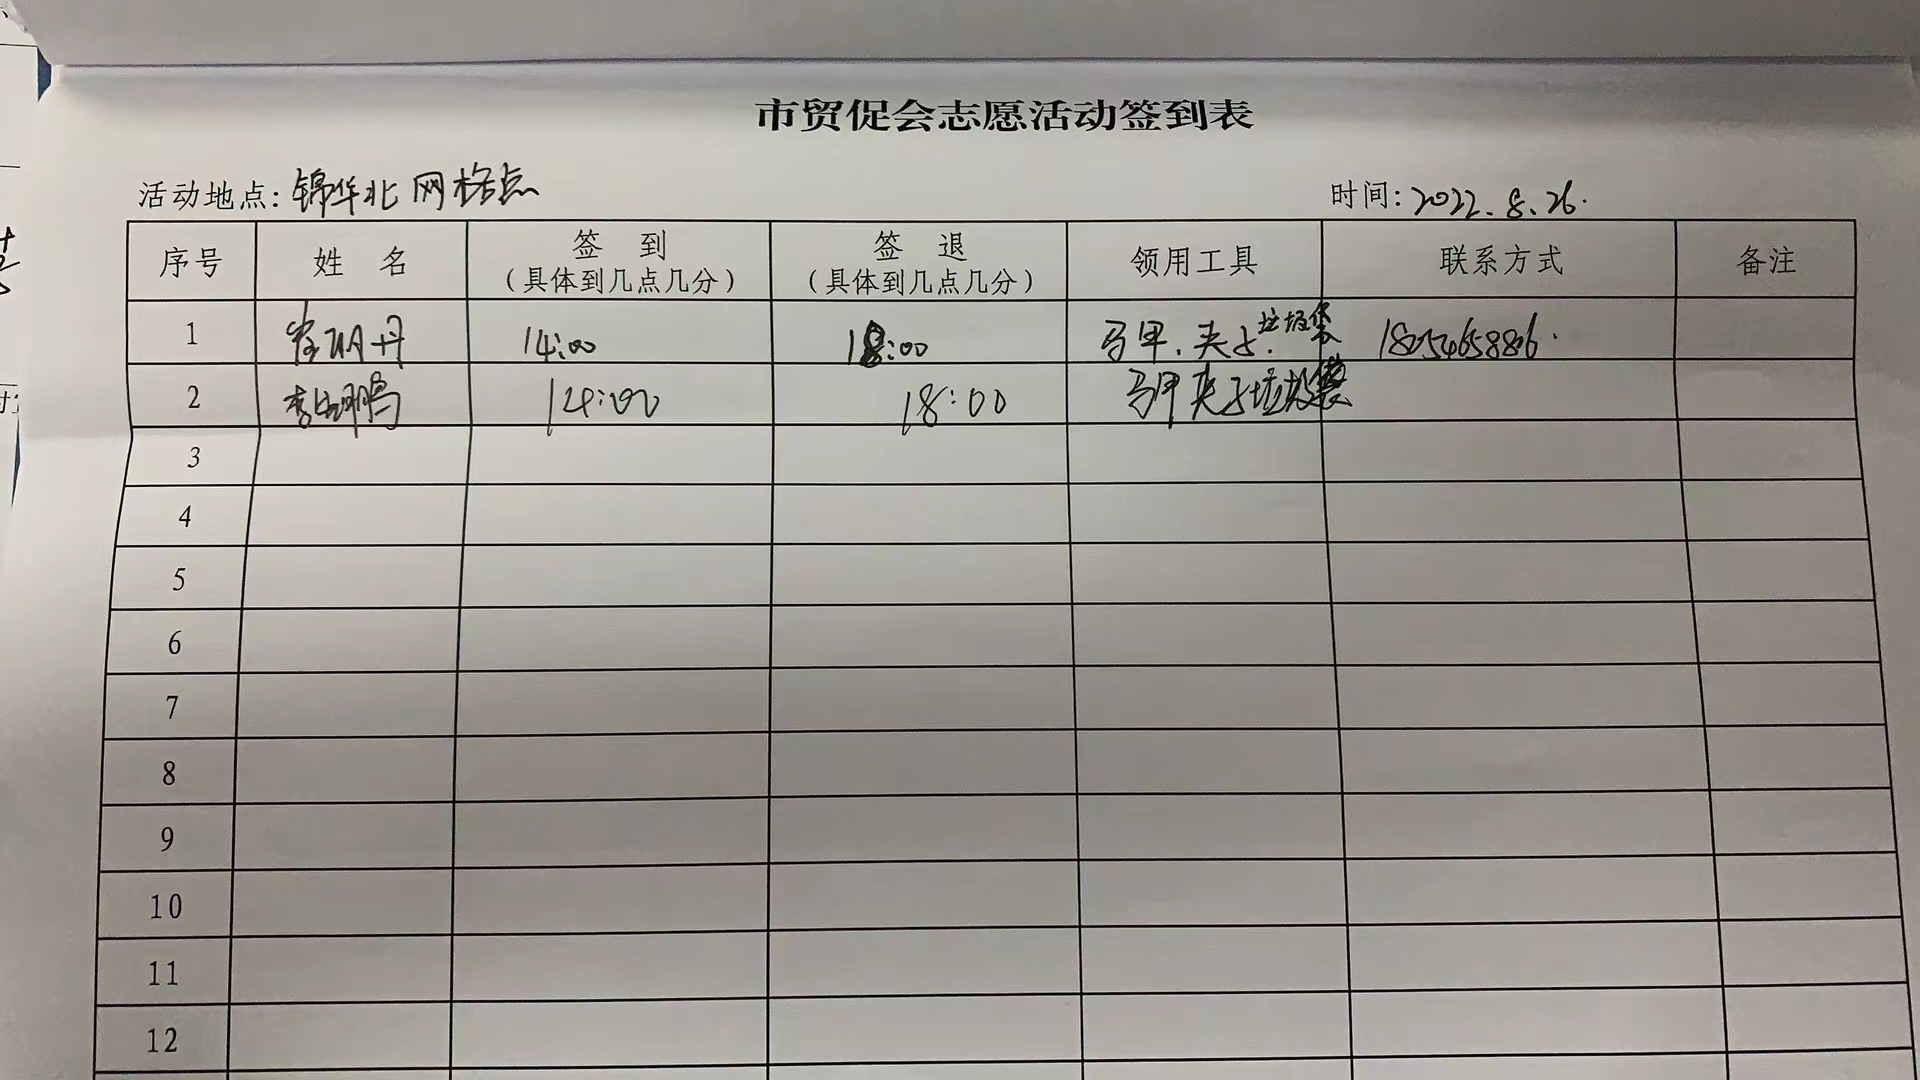 市贸促会志愿活动签到表
活动地点: 锦华北网格点 时间: 2022.8.26.
序号 姓名 签到 (具体到几点几分) 签退 (具体到几点几分) 领用工具 联系方式 备注
1 崔明丹 14:00 18:00 马甲.夹子.垃圾袋
2 14:00 18:00 马甲夹子垃圾袋
3
4
5
6
7
8
9
10
11
12